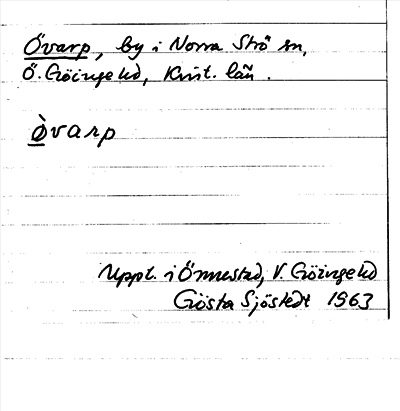 Övarp, by i Norra Strö sn,
Ö. Göinge hd, Krist. län.
ò̱varp
Uppt. i Önnestad, V. Göinge hd
Gösta Sjöstedt 1963